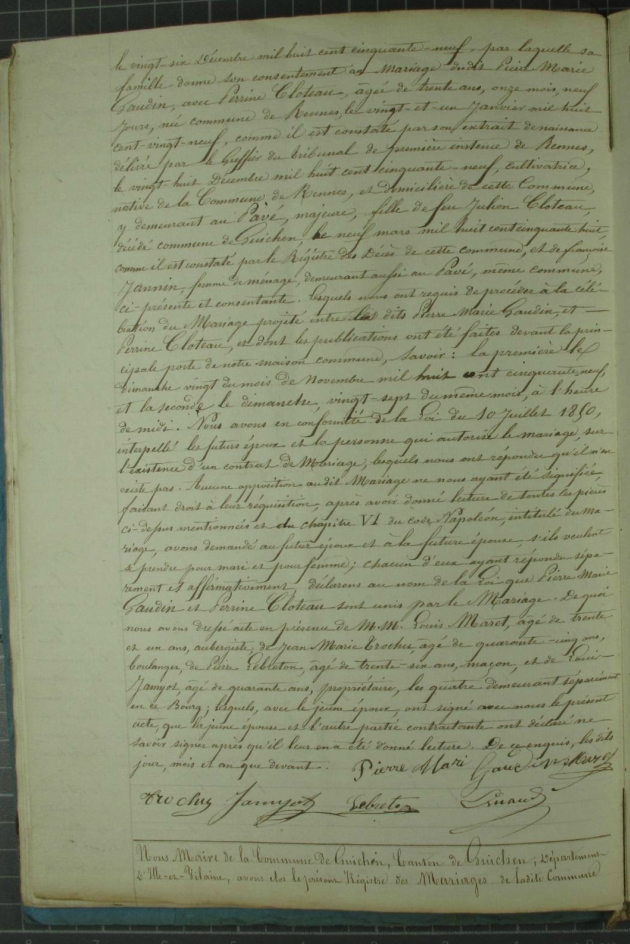 le vingt-six Décembre mil huit cent cinquante-neuf, par laquelle sa
famille donne son consentement au Mariage dudit Pierre Marie
Gaudin, avec Perrine Cloteau, âgée de trente ans, onze mois, neuf
jours, née commune de Rennes, le vingt-et-un Janvier mil huit
cent-vingt-neuf, comme il est constaté par son extrait de naissance
délivré par le Greffier du tribunal de première instance de Rennes,
le vingt huit Décembre mil huit cent cinquante-neuf, cultivatrice,
native de la Commune de Rennes, et domiciliée de cette Commune,
y demeurant au Pavé, majeure, fille de feu Julien Cloteau,
décédé commune de Guichen, le neuf mars mil huit cent cinquante huit
comme il est constaté par le Régistre des Décès de cette commune, et de françoise
Jannin, femme de ménage, demeurant aussi au Pavé, même commune,
ci-présente et consentante. Lesquels nous ont requis de procéder à la célé-
bration du Mariage projeté entre les dits Pierre Marie Gaudin, et
Perrine Cloteau, et dont les publications ont été faites devant la prin-
cipale porte de notre maison commune, Savoir : la première le
dimanche vingt du mois de Novembre mil huit cent cinquante neuf,
et la seconde le dimanche, vingt-sept du même mois, à l'heure
de midi. Nous avons en conformité de la Loi du 10 Juillet 1850,
interpellé les futurs époux et la personne qui autorise le mariage, sur
l'existence d'un contrat de Mariage, lesquels nous ont répondu qu'il n'en
existe pas. Aucune opposition audit Mariage ne nous ayant été signifiée,
faisant droit à leur réquisition, après avoir donné lecture de toutes les pièces
ci-dessus mentionnées et du chapitre VI du code Napoléon, intitulé du Ma-
riage, avons demandé au futur époux et à la future épouse s'ils veulent
se prendre pour mari et pour femme; chacun d'eux ayant répondu sépa-
rément et affirmativement, déclarons au nom de la Loi que Pierre Marie
Gaudin et Perrine Cloteau sont unis par le Mariage. De quoi
nous avons dressé acte en présence de M.M. Louis Maret, âgé de trente
et un ans, aubergiste, de Jean Marie Trochu, âgé de quarante-cinq ans,
boulanger, de Pierre Lebreton, âgé de trente-six ans, maçon, et de Louis
Jamyot, âgé de quarante ans, propriétaire, les quatre demeurant séparément
en ce Bourg; lesquels, avec le jeune époux, ont signé avec nous le présent
acte, que la jeune épouse et l'autre partie contractante ont déclaré ne
savoir signer après qu'il leur en a été donné lecture. De ce enquis, les dits
jour, mois et an que devant. Pierre Mari Gaudin
trochu Jamyot Lebreton
Nous Maire de la Commune de Guichen, Canton de Guichen, Département
d'Ille-et-Vilaine, avons clos le présent Régistre des Mariages de ladite Commune